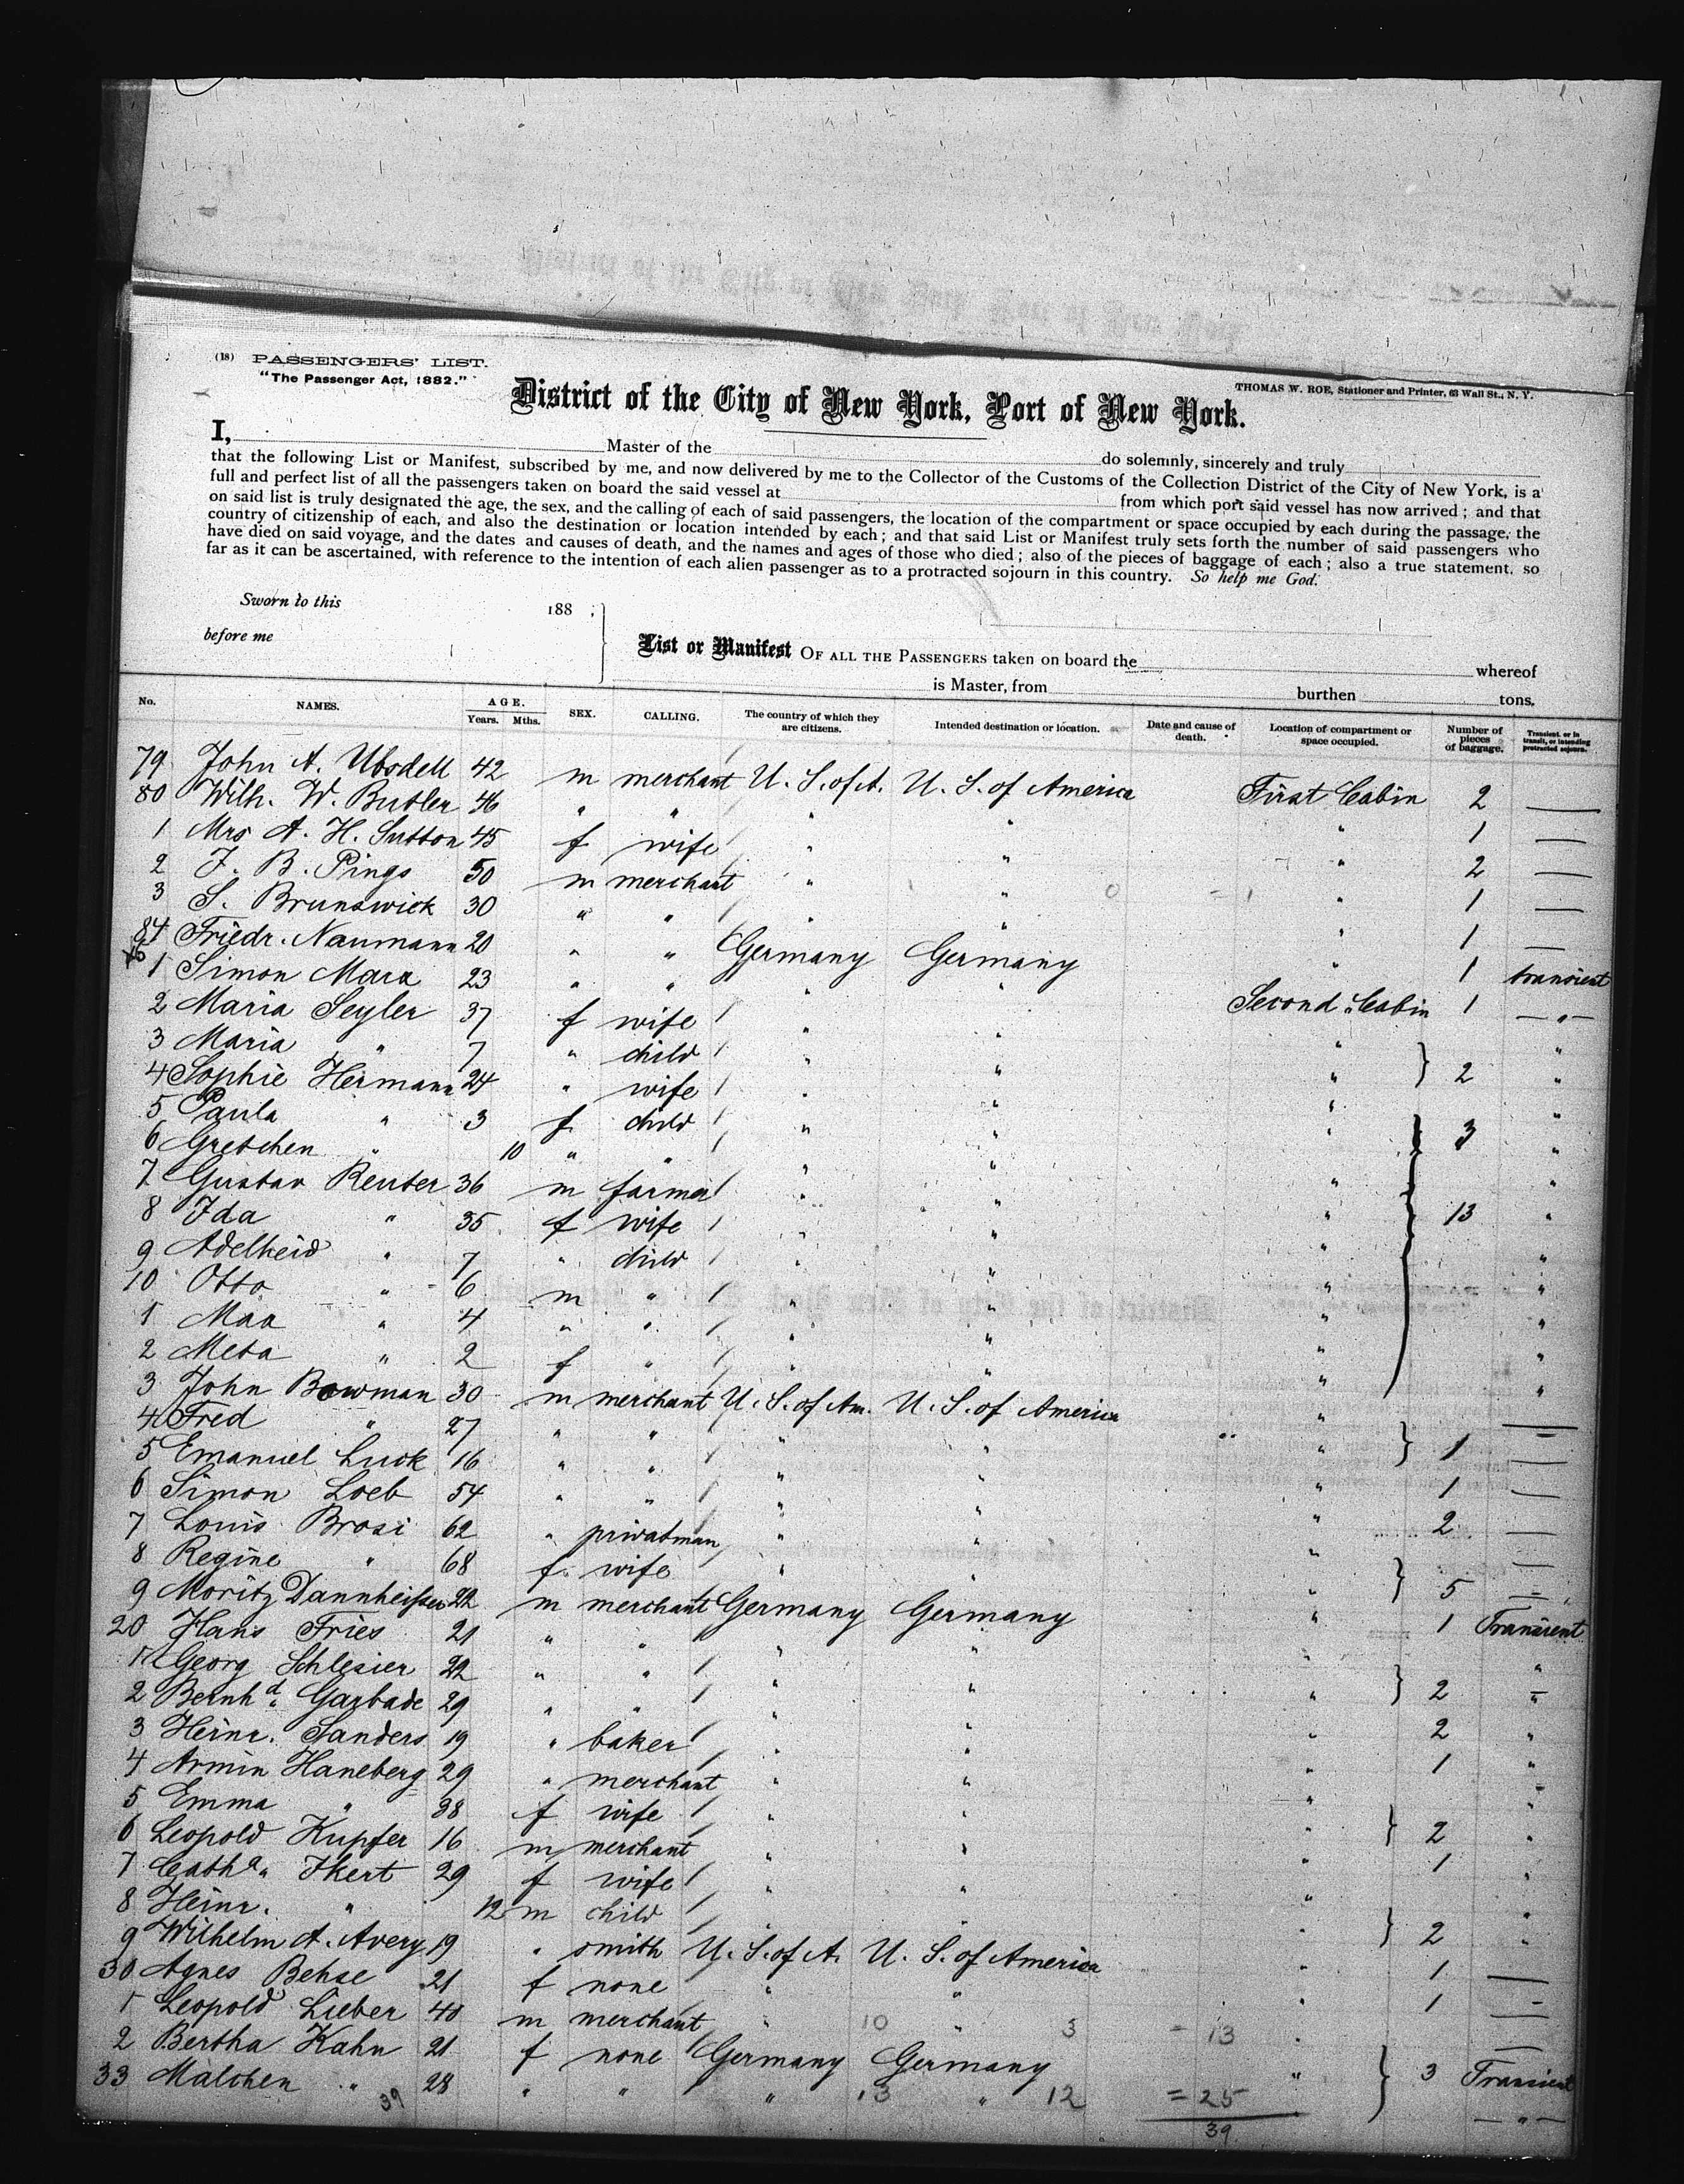 (18) PASSENGERS' LIST.
"The Passenger Act, 1882."
THOMAS W. ROE, Stationer and Printer, 63 Wall St., N. Y.
District of the City of New York, Port of New York.
I, Master of the do solemnly, sincerely and truly
that the following List or Manifest, subscribed by me, and now delivered by me to the Collector of the Customs of the Collection District of the City of New York, is a
full and perfect list of all the passengers taken on board the said vessel at from which port said vessel has now arrived; and that
on said list is truly designated the age, the sex, and the calling of each of said passengers, the location of the compartment or space occupied by each during the passage, the
country of citizenship of each, and also the destination or location intended by each; and that said List or Manifest truly sets forth the number of said passengers who
have died on said voyage, and the dates and causes of death, and the names and ages of those who died; also of the pieces of baggage of each; also a true statement, so
far as it can be ascertained, with reference to the intention of each alien passenger as to a protracted sojourn in this country. So help me God.
Sworn to this 188 ;
before me
List or Manifest OF ALL THE PASSENGERS taken on board the whereof
is Master, from burthen tons.
No. NAMES. AGE. Years. Mths. SEX. CALLING. The country of which they are citizens. Intended destination or location. Date and cause of death. Location of compartment or space occupied. Number of pieces of baggage. Transient, or in transit, or intending protracted sojourn.
79 John A. Ubsdell 42 m merchant U. S. of A. U. S. of America First Cabin 2 —
80 Wilh. W. Butler 46 " " " " " 1 —
1 Mrs A. H. Sutton 45 f wife " " " 2 —
2 J. B. Pings 50 m merchant " " " 1 —
3 S. Brunswick 30 " " " " " 1 —
84 Friedr. Naumann 20 " " Germany Germany " 1 transient
1 Simon Marx 23 " " " " Second Cabin 1 — " —
2 Maria Seyler 37 f wife " " " "
3 Maria " 7 " child " " " 2 "
4 Sophie Hermann 24 " wife " " " "
5 Paula " 3 f child " " " 3 "
6 Gretchen " 10 " " " " " "
7 Gustav Reuter 36 m farmer " " " 13 "
8 Ida " 35 f wife " " " "
9 Adelheid " 7 " child " " " "
10 Otto " 6 m " " " " "
1 Max " 4 " " " " " "
2 Meta " 2 f " " " " "
3 John Bowman 30 m merchant U. S. of Am. U. S. of America " —
4 Fred " 27 " " " " " 1 —
5 Emanuel Luck 16 " " " " " 1 —
6 Simon Loeb 54 " " " " " 2 —
7 Louis Brosi 62 " privatman " " " —
8 Regine " 68 f wife " " " 5 —
9 Moritz Dannheisser 22 m merchant Germany Germany " 1 Transient
20 Hans Fries 21 " " " " " "
1 Georg Schlesier 22 " " " " " 2 "
2 Bernhd. Garbade 29 " " " " " 2 "
3 Heinr. Sanders 19 " baker " " " 1 "
4 Armin Haneberg 29 " merchant " " " "
5 Emma " 38 f wife " " " 2 "
6 Leopold Kupfer 16 m merchant " " " 1 "
7 Catha. Ikert 29 f wife " " " "
8 Heinr. " 12 m child " " " 2 "
9 Wilhelm A. Avery 19 " smith U. S. of A. U. S. of America " 1 —
30 Agnes Behse 21 f none " " " 1 —
1 Leopold Lieber 40 m merchant " 10 " 3 = 13 " —
2 Bertha Kahn 21 f none Germany Germany " 3 Transient
33 Malchen " 28 " " " 13 " 12 = 25 — " —
39 39